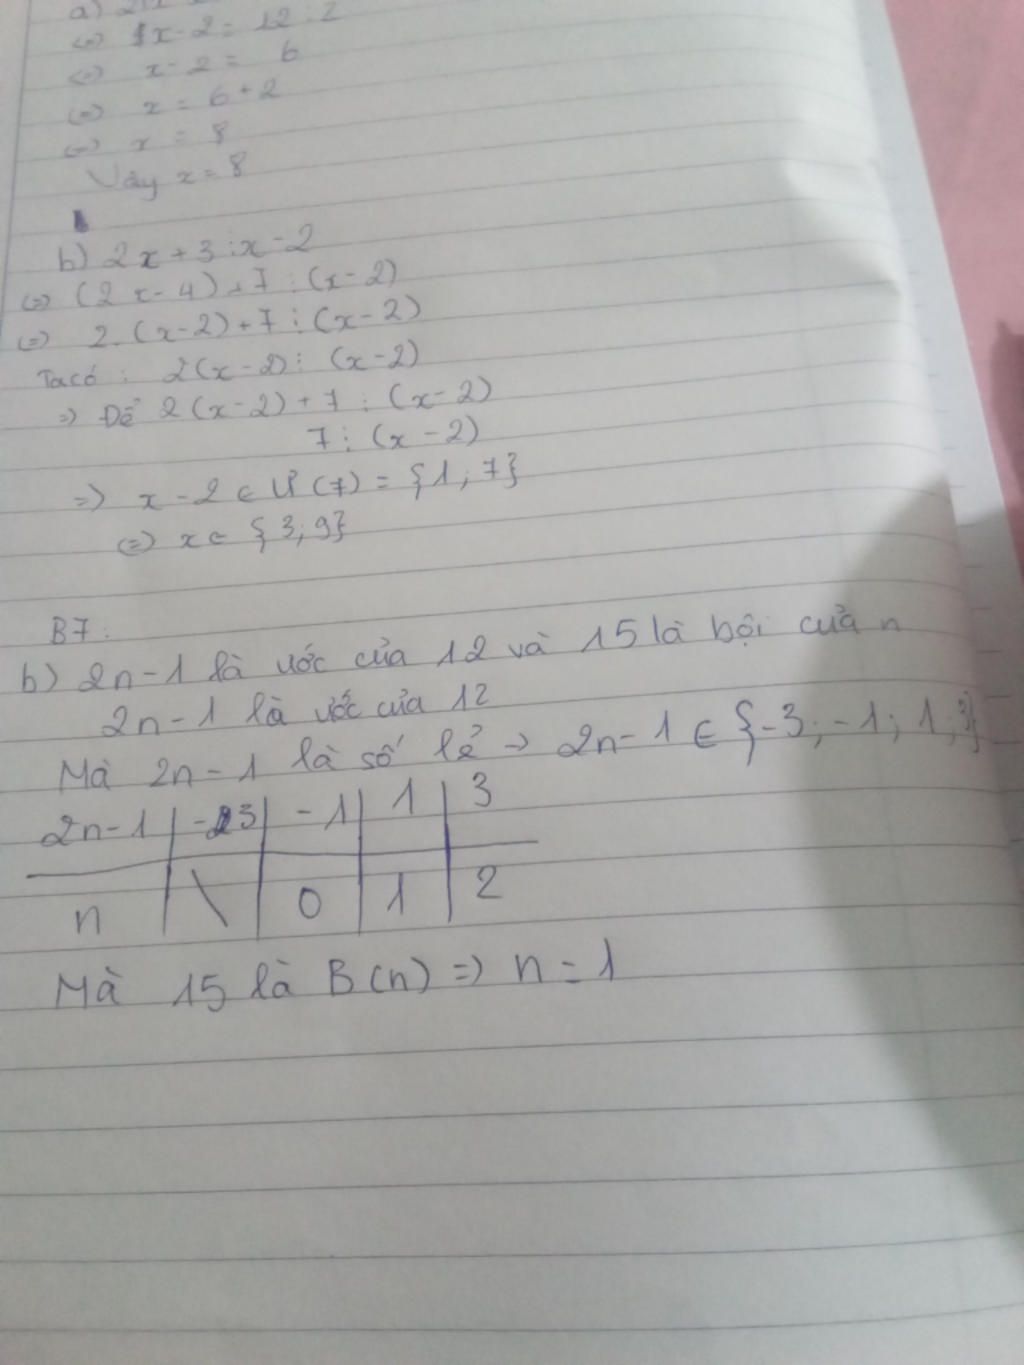 a)
<=> x-2 = 12 : 2
<=> x-2 = 6
<=> x = 6+2
<=> x = 8
Vậy x = 8
b) 2x + 3 ⋮ x-2
<=> (2x-4)+7 ⋮ (x-2)
<=> 2.(x-2)+7 ⋮ (x-2)
Ta có : 2(x-2) ⋮ (x-2)
=> Để 2(x-2) + 7 ⋮ (x-2)
7 ⋮ (x-2)
=> x-2 ∈ Ư(7) = {1; 7}
<=> x ∈ {3; 9}
B7:
b) 2n-1 là ước của 12 và 15 là bội của n
2n-1 là ước của 12
Mà 2n-1 là số lẻ → 2n-1 ∈ {-3; -1; 1; 3}
2n-1 | -3 | -1 | 1 | 3
n | \ | 0 | 1 | 2
Mà 15 là B(n) => n = 1